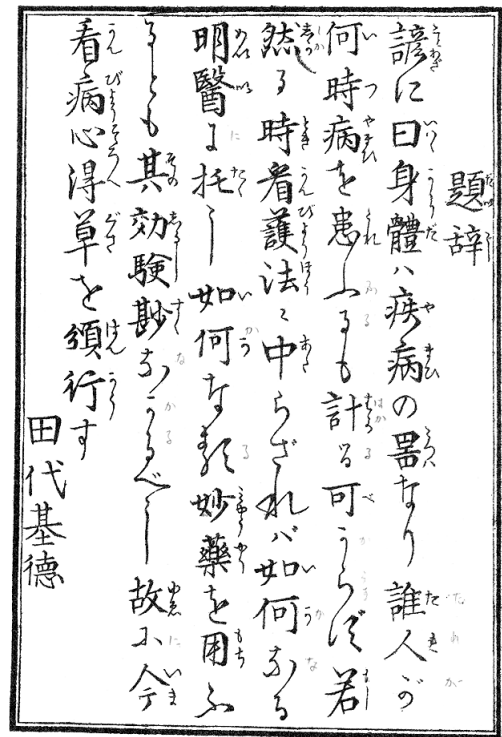 題辞
諺に曰身體ハ疾病の器なり誰人が
何時病を患ふるも計る可からず若
然る時看護法ニ中らざれバ如何なる
明醫に托し如何なる妙藥を用ふ
るとも其効験尠なかるべし故に今
看病心得草を頒行す
田代基德